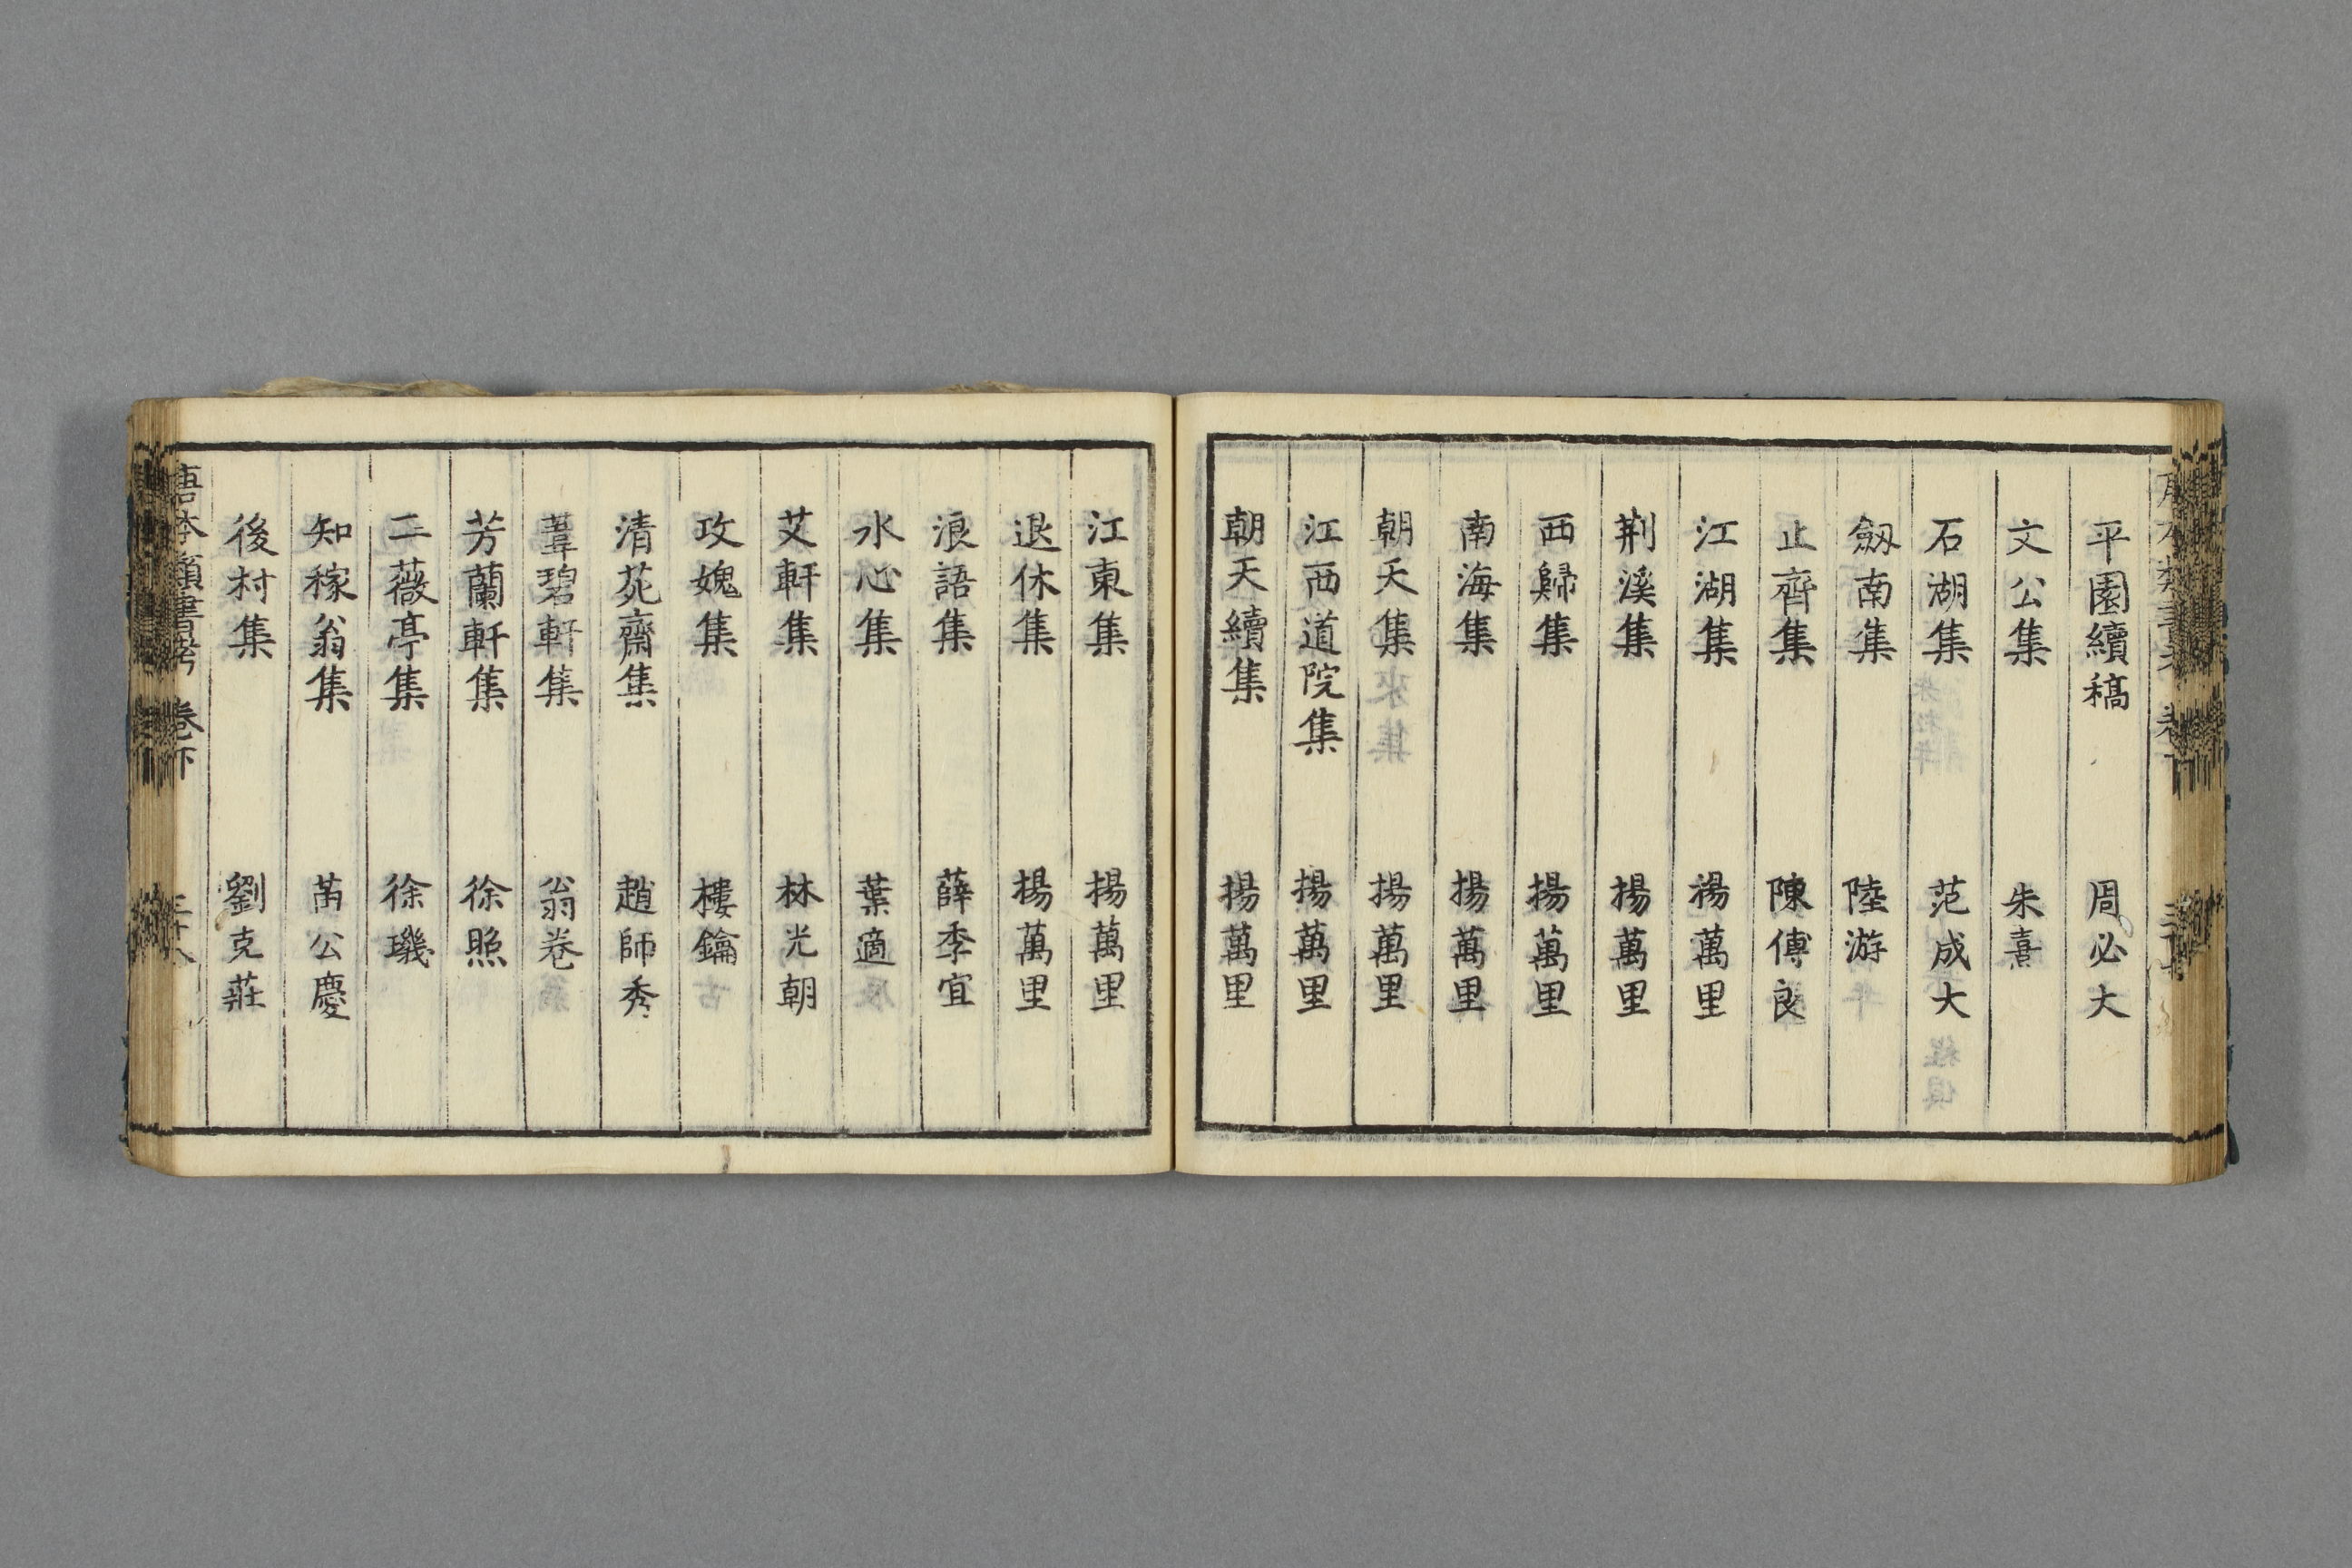 平園續稿 周必大
文公集 朱熹
石湖集 范成大
劔南集 陸游
止齊集 陳傅良
江湖集 楊萬里
荆溪集 揚萬里
西歸集 揚萬里
南海集 揚萬里
朝天集 揚萬里
江西道院集 揚萬里
朝天續集 揚萬里
江東集 揚萬里
退休集 揚萬里
浪語集 薛季宜
水心集 葉適
艾軒集 林光朝
攻媿集 樓鑰
清苑齋集 趙師秀
葦碧軒集 翁卷
芳蘭軒集 徐照
二薇亭集 徐璣
知稼翁集 公慶
後村集 劉克莊
唐本類書考 卷下